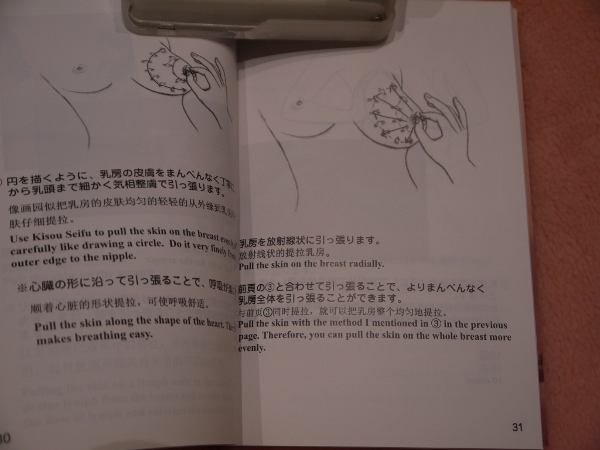 円を描くように、乳房の皮膚をまんべんなく丁寧に
から乳頭まで細かく気相整膚で引っ張ります。
像画园似把乳房的皮肤均匀的轻轻的从外缘到乳
肤仔细提拉。
Use Kisou Seifu to pull the skin on the breast
carefully like drawing a circle. Do it very finely from
outer edge to the nipple.
※心臓の形に沿って引っ張ることで、呼吸が
顺着心脏的形状提拉，可使呼吸舒适。
Pull the skin along the shape of the heart.
makes breathing easy.
乳房を放射線状に引っ張ります。
放射线状的提拉乳房。
Pull the skin on the breast radially.
前頁の③と合わせて引っ張ることで、よりまんべんなく
乳房全体を引っ張ることができます。
与前页③同时提拉，就可以把乳房整个均匀地提拉。
Pull the skin with the method I mentioned in ③ in the previous
page. Therefore, you can pull the skin on the whole breast more
evenly.
31